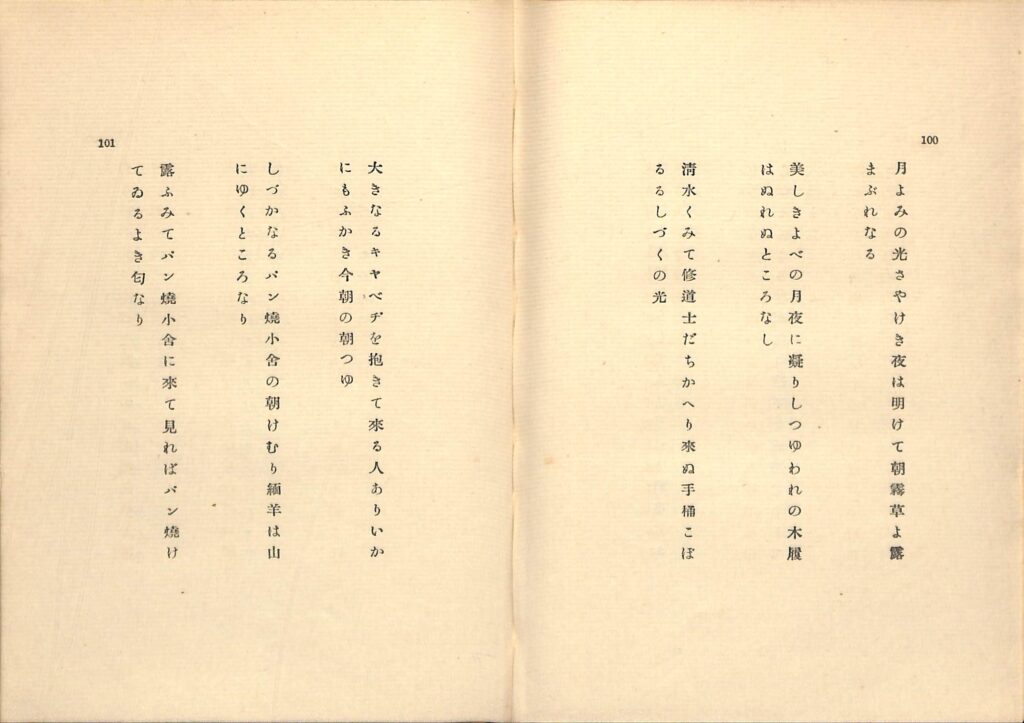 100
月よみの光さやけき夜は明けて朝霧草よ露
まぶれなる
美しきよべの月夜に凝りしつゆわれの木履
はぬれぬところなし
清水くみて修道士だちかへり來ぬ手桶こぼ
るるしづくの光
101
大きなるキヤベヂを抱きて來る人ありいか
にもふかき今朝の朝つゆ
しづかなるパン燒小舍の朝けむり緬羊は山
にゆくところなり
露ふみてパン燒小舍に來て見ればパン燒け
てゐるよき匂なり